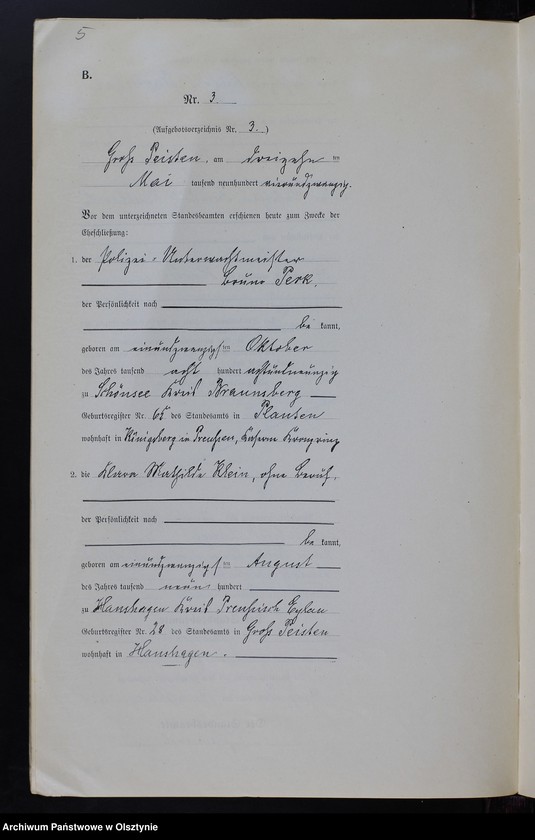 5
B.
Nr. 3
(Aufgebotsverzeichnis Nr. 3.)
Groß Peisten, am dreizehn ten
Mai tausend neunhundert vierundzwanzig.
Vor dem unterzeichneten Standesbeamten erschienen heute zum Zwecke der
Eheschließung:
1. der Polizei-Unterwachtmeister
Bruno Perk,
der Persönlichkeit nach
be kannt,
geboren am einundzwanzigsten Oktober
des Jahres tausend acht hundert achtundneunzig
zu Schönsee Kreis Braunsberg
Geburtsregister Nr. 65 des Standesamts in Plauten
wohnhaft in Königsberg in Preußen, Kaserne Kronprinz
2. die Klara Mathilde Klein, ohne Beruf,
der Persönlichkeit nach
be kannt,
geboren am einundzwanzigsten August
des Jahres tausend neun hundert
zu Hanshagen Kreis Preußisch Eylau
Geburtsregister Nr. 28 des Standesamts in Groß Peisten
wohnhaft in Hanshagen.
Archiwum Państwowe w Olsztynie